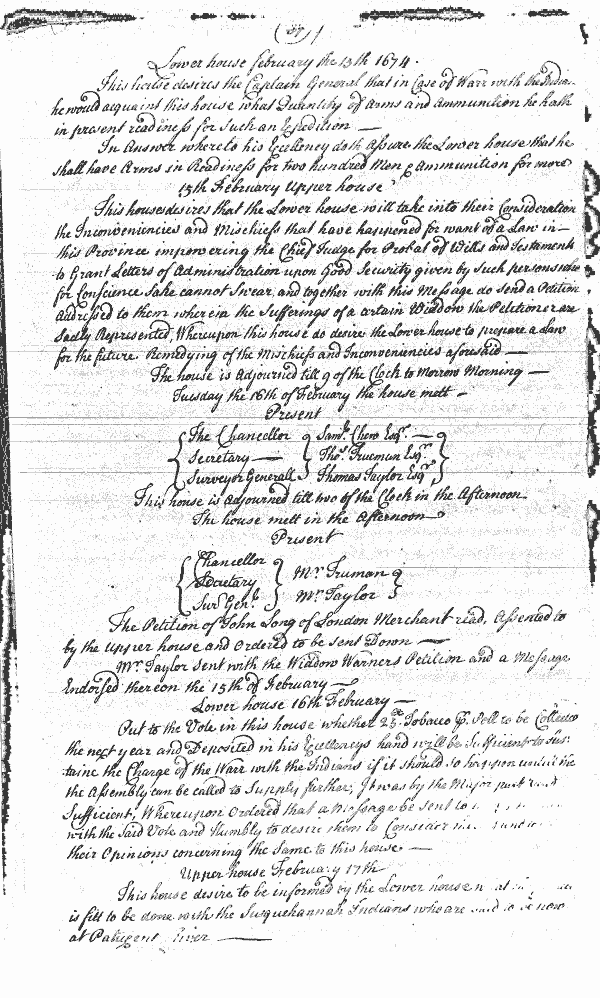 (37)
Lower house February the 13th 1674.
This house desires the Captain General that in Case of Warr with the Indians
he would acquaint this house what Quantity of Arms and Ammunition he hath
in present readiness for Such an Expedition —
In Answer whereto his Excellency doth Assure the Lower house that he
shall have Arms in Readiness for two hundred Men & Ammunition for more
15th February Upper house
This house desires that the Lower house will take into their Consideration
the Inconveniencies and Mischiefs that have happened for want of a Law in
this Province impowering the Chief Judge for Probat of Wills and Testaments
to Grant Letters of Administration upon Good Security given by Such persons who
for Conscience Sake cannot Swear, and together with this Message do send a Petition
Addressed to them wherein the Sufferings of a certain Widdow the Petitioner are
Sadly Represented, Whereupon this house do desire the Lower house to prepare a Law
for the future Remedying of the Mischiefs and Inconveniencies aforesaid —
The house is Adjourned till 9 of the Clock to Morrow Morning —
Tuesday the 16th of February the house mett —
Present
The Chancellor Saml. Chew Esqr. —
Secretary — Thos. Trueman Esqr.
Surveyor Generall Thomas Taylor Esqr.
This house is Adjourned till two of the Clock in the Afternoon
The house mett in the Afternoon
Present
Chancellor
Secretary Mr. Truman
Surr. Genl. Mr. Taylor
The Petition of John Long of London Merchant read, Assented to
by the upper house and Ordered to be sent Down —
Mr. Taylor sent with the Widdow Warners Petition and a Message
Endorsed thereon the 15th of February —
Lower house 16th February —
Put to the Vote in this house whether 25lb Tobacco P. Poll to be Collected
the next year and Deposited in his Excellencys hand will be Sufficient to Sus-
taine the Charge of the Warr with the Indians if it should so happen until the
the Assembly can be called to Supply further, It was by the Major part
Sufficient, Whereupon Ordered that a Message be sent to
with the Said Vote and Humbly to desire them to Consider
their Opinions concerning the Same to this house —
Upper house February 17th
This house desire to be informed by the Lower house
is fitt to be done with the Susquehannah Indians who are said to be now
at Patuxent River —